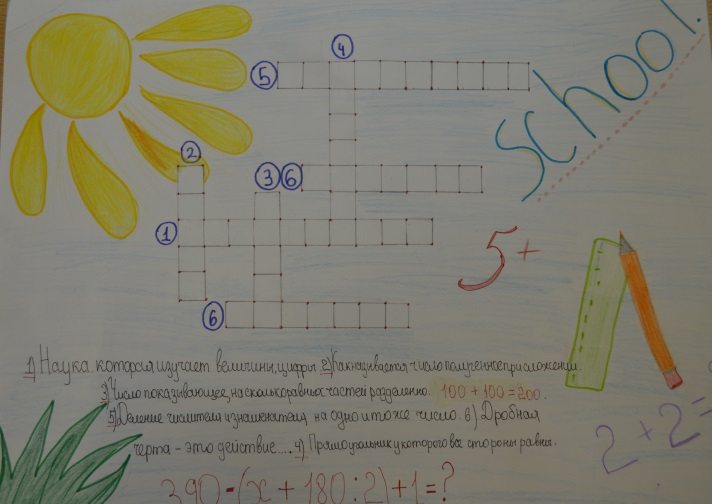 School.
4
5
2
3 6
1
5+
6
1) Наука которая изучает величины, цифры 2) Как называется число полученное при сложении.
3) Число показывающее, на сколько равных частей разделено. 100 + 100 = 200.
5) Деление числителя и знаменателя на одно и то же число. 6) Дробная
черта - это действие.... 4) Прямоугольник у которого все стороны равны.
2 + 2 =
390 - (x + 180 : 2) + 1 = ?